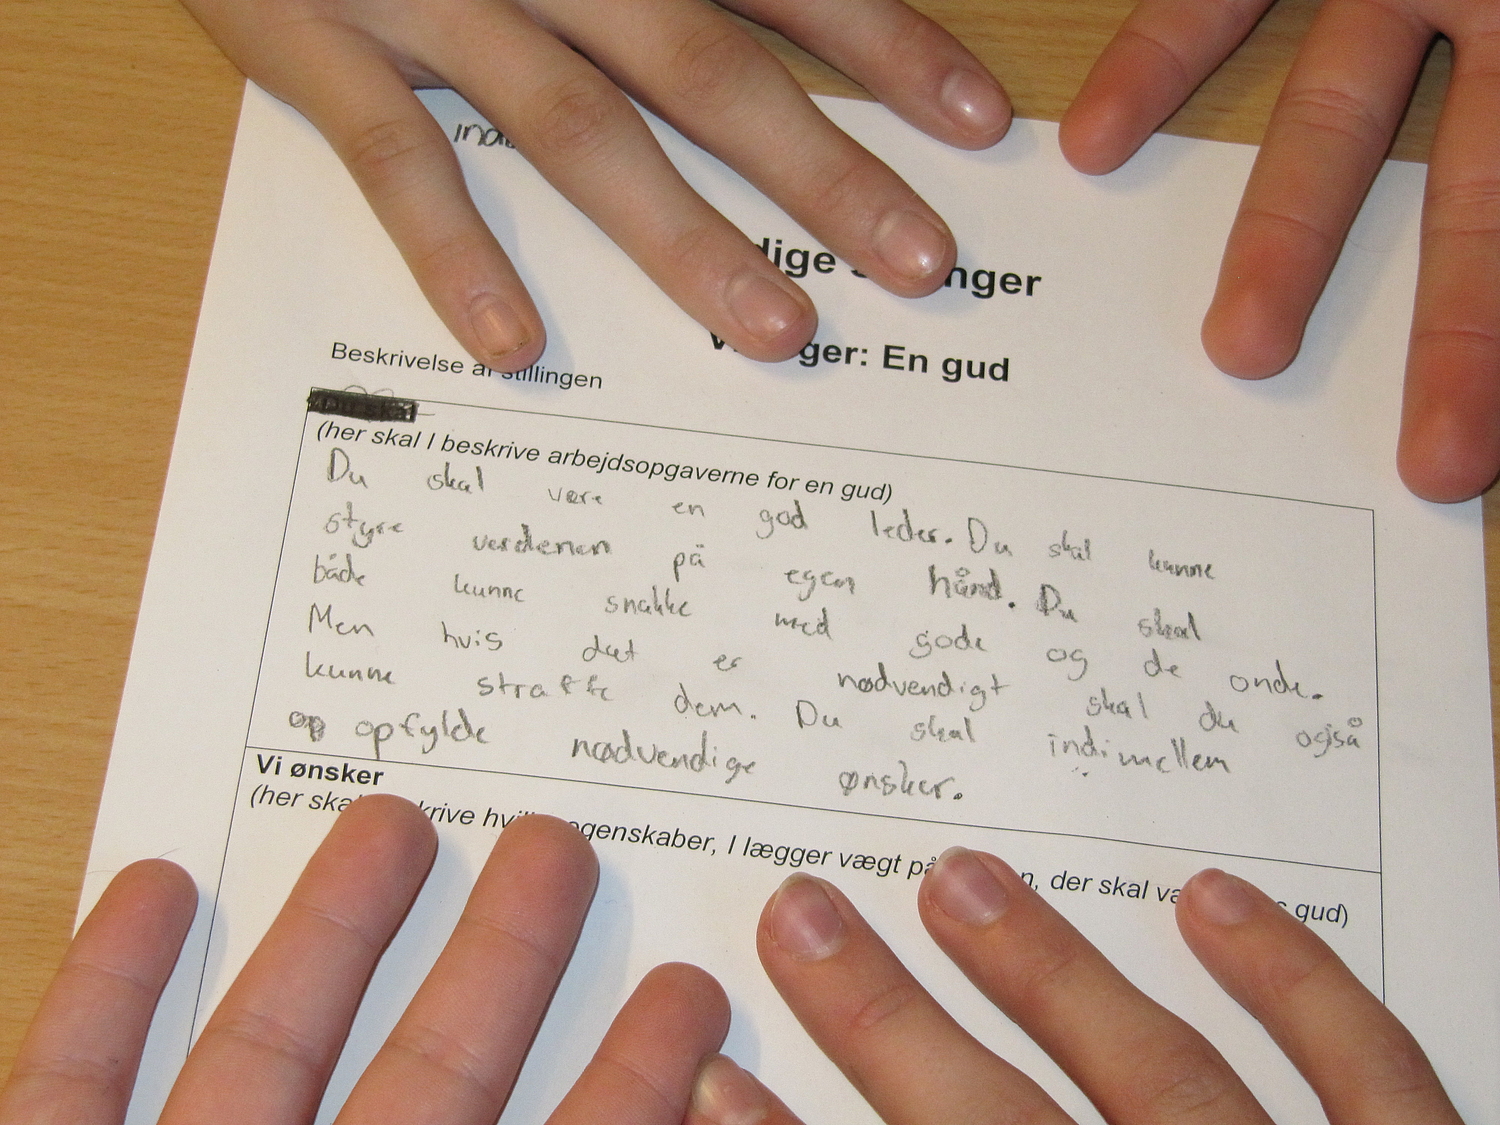 dige
nger
ger: En gud
Beskrivelse af stillingen
(her skal I beskrive arbejdsopgaverne for en gud)
Du skal være en god leder. Du skal kunne
styre verdenen på egen hånd. Du skal
både kunne snakke med gode og de onde.
Men hvis det er nødvendigt skal du også
kunne straffe dem. Du skal indimellem
opfylde nødvendige ønsker.
Vi ønsker
(her skal krive egenskaber, I lægger vægt på n, der skal gud)